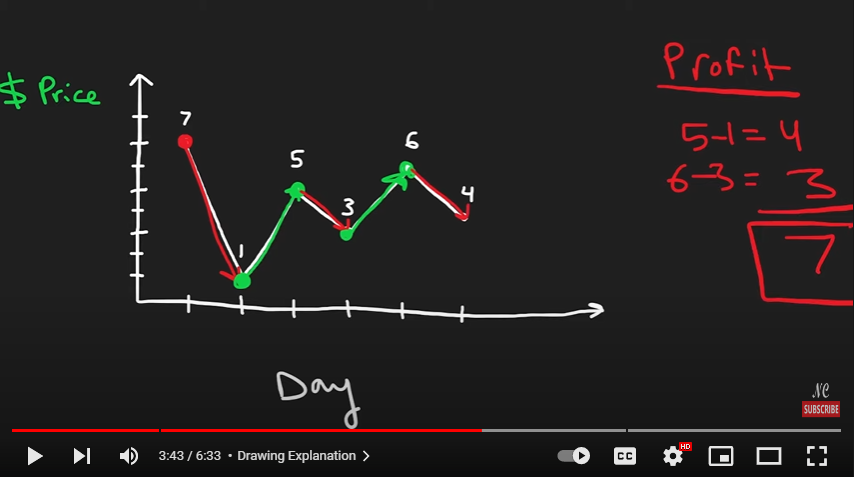 $ Price
7
1
5
3
6
4
Day
Profit
5-1 = 4
6-3 = 3
7
NC
SUBSCRIBE
3:43 / 6:33 • Drawing Explanation >
CC
HD